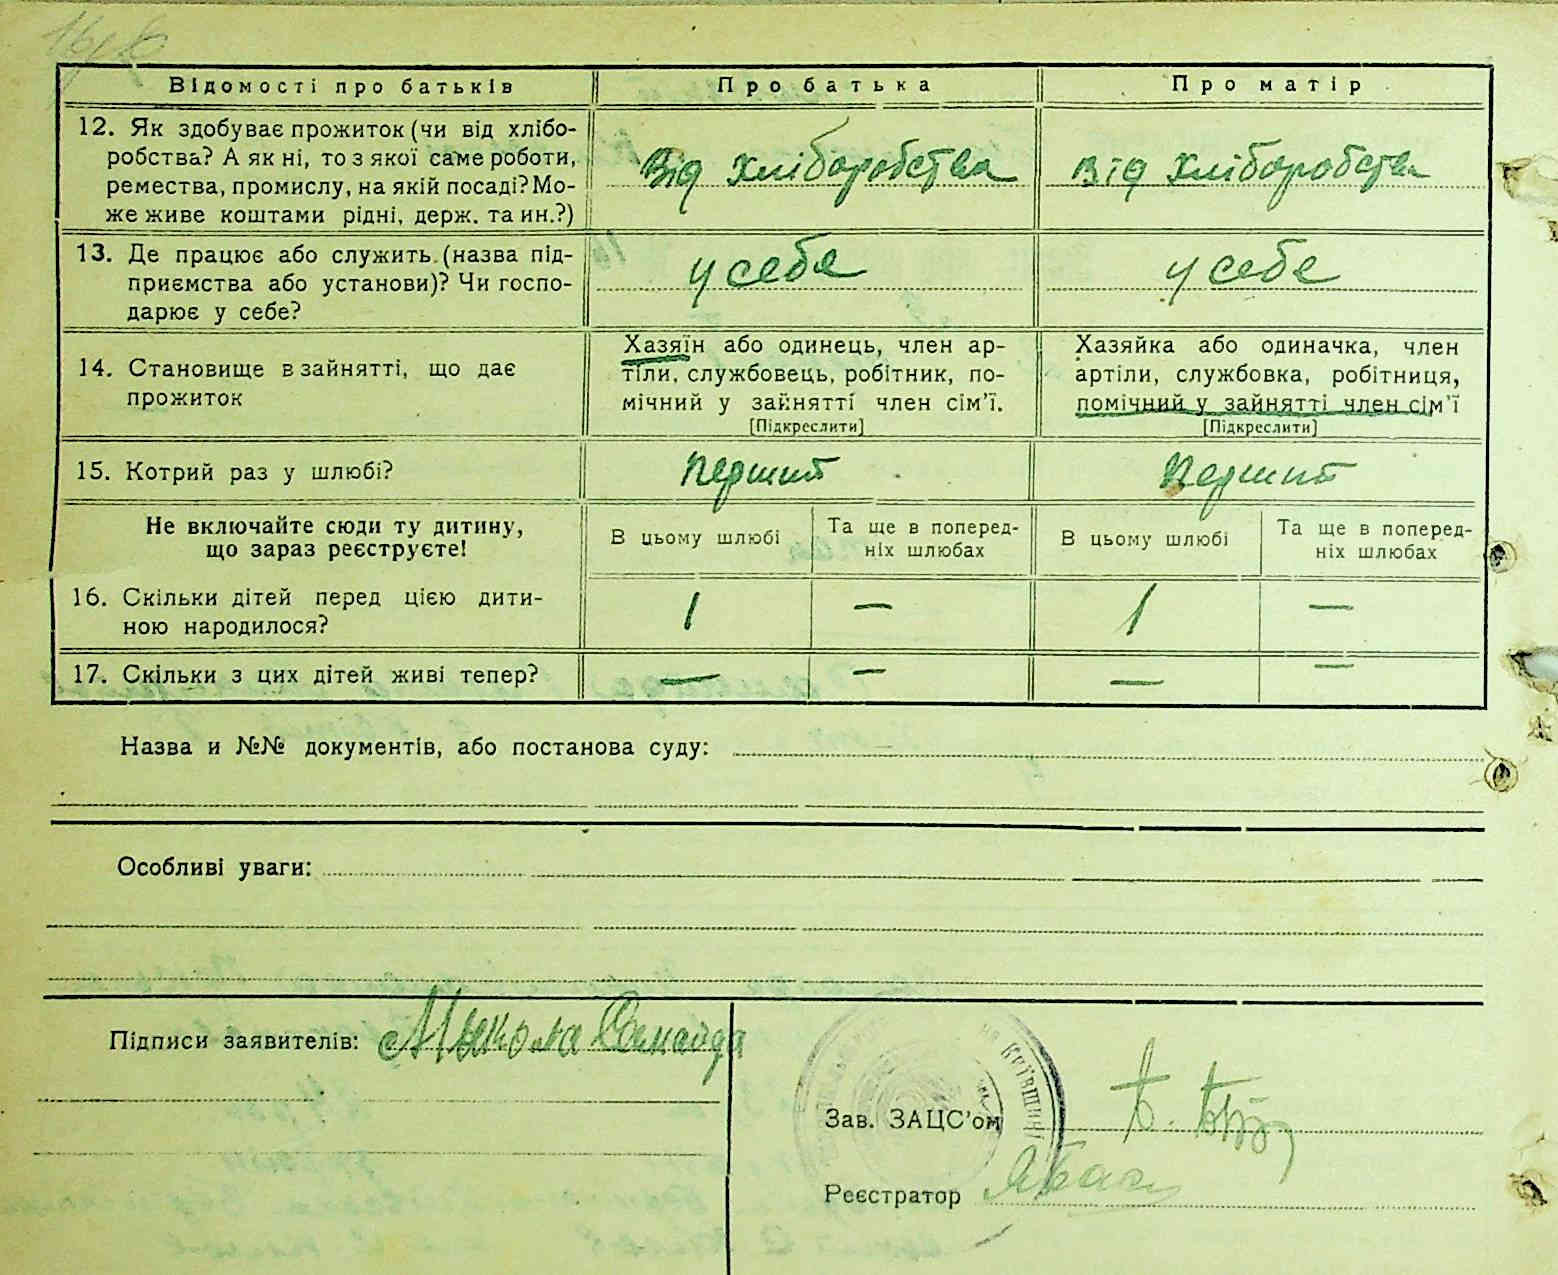 Відомості про батьків | Про батька | Про матір
12. Як здобуває прожиток (чи від хлібо-
робства? А як ні, то з якої саме роботи,
ремества, промислу, на якій посаді? Мо-
же живе коштами рідні, держ. та ин.?)
Від хліборобства | Від хліборобства
13. Де працює або служить (назва під-
приємства або установи)? Чи госпо-
дарює у себе?
у себе | у себе
14. Становище в зайнятті, що дає
прожиток
Хазяїн або одинець, член ар-
тіли, службовець, робітник, по-
мічний у зайнятті член сім'ї.
[Підкреслити]
Хазяйка або одиначка, член
артіли, службовка, робітниця,
помічний у зайнятті член сім'ї
[Підкреслити]
15. Котрий раз у шлюбі? | Перший | Перший
Не включайте сюди ту дитину,
що зараз реєструєте!
В цьому шлюбі | Та ще в поперед-
ніх шлюбах | В цьому шлюбі | Та ще в поперед-
ніх шлюбах
16. Скільки дітей перед цією дити-
ною народилося?
1 | — | 1 | —
17. Скільки з цих дітей живі тепер? | — | — | — | —
Назва и №№ документів, або постанова суду:
Особливі уваги:
Підписи заявителів: Микола
на Київщині
Зав. ЗАЦС'ом
Реєстратор